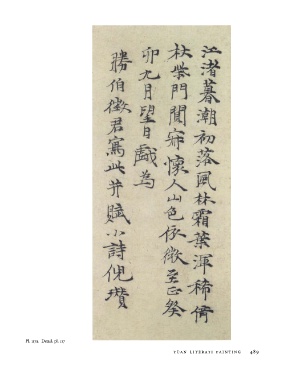 江渚暮潮初落風林霜葉渾稀倚
杖柴門闃寂懷人山色依微至正癸
卯九月望日戲為
勝伯徵君寫此并賦小詩倪瓚
Detail
YÜAN LITERATI PAINTING 489